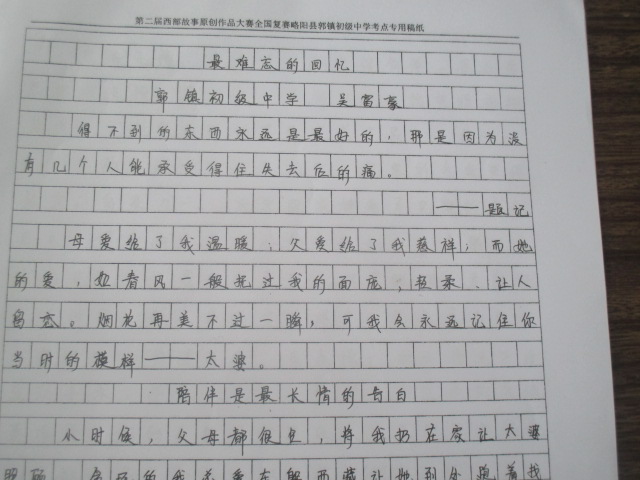 第二届西部故事原创作品大赛全国复赛略阳县郭镇初级中学考点专用稿纸
最难忘的回忆
郭镇初级中学 吴富豪
得不到的东西永远是最好的，那是因为没
有几个人能承受得住失去后的痛。
——题记
母爱给了我温暖；父爱给了我慈祥；而她
的爱，如春风一般抚过我的面庞，轻柔、让人
留恋。烟花再美不过一瞬，可我会永远记住你
当时的模样——太婆。
陪伴是最长情的告白
小时候，父母都很忙，将我扔在家让太婆
照顾。